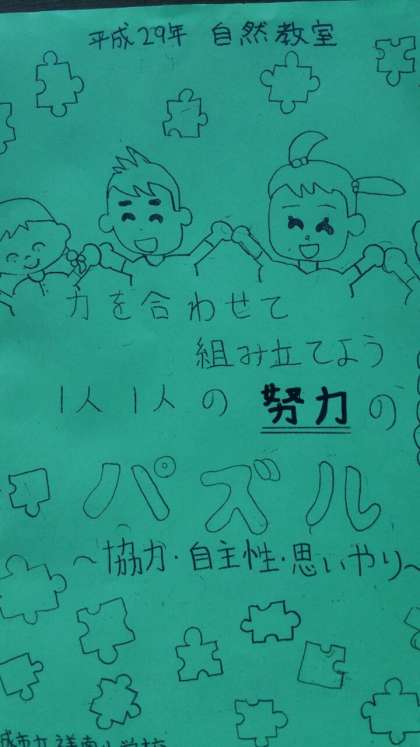 平成29年 自然教室
力を合わせて
組み立てよう
1人1人の努力の
パズル
～協力・自主性・思いやり～
城市立祥南小学校